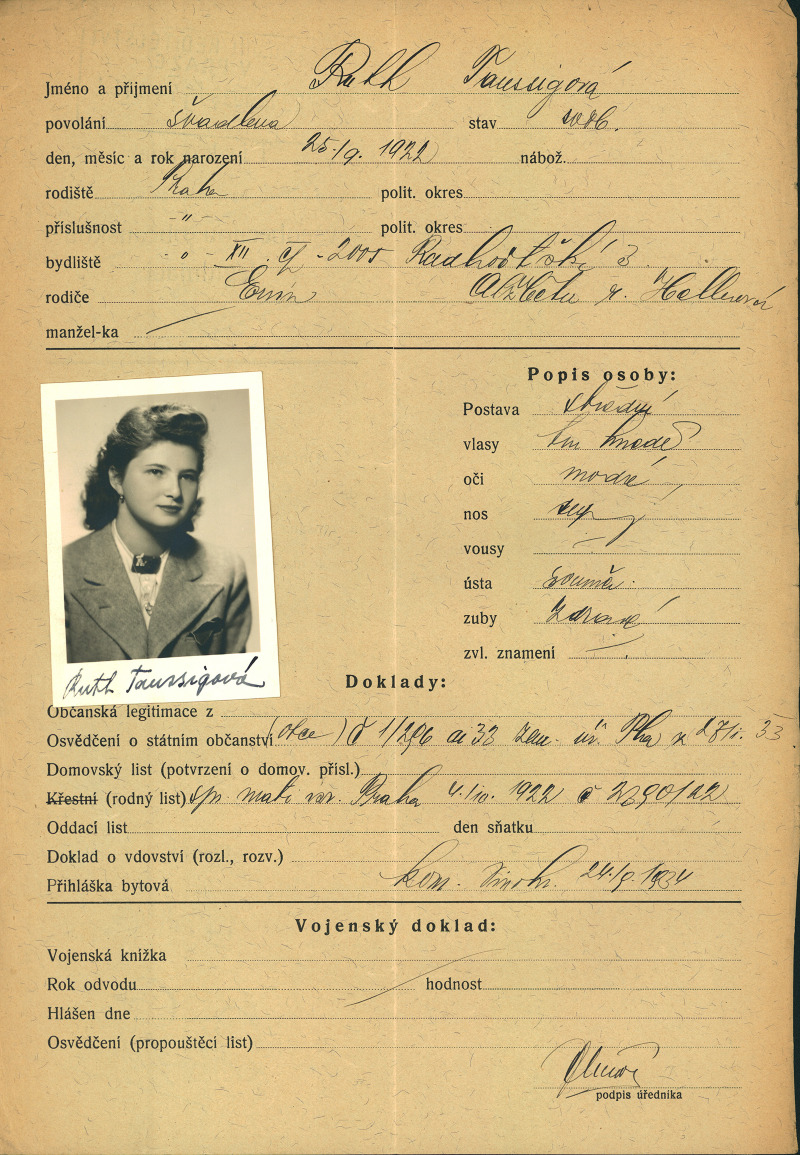 Jméno a příjmení Ruth Taussigová
povolání švadlena stav svob.
den, měsíc a rok narození 25./9. 1922 nábož.
rodiště Praha polit. okres
příslušnost -"- polit. okres
bydliště -"- XII. čp - 2005 Radhošťská 3
rodiče Ervin Alžběta r. Hellerová
manžel-ka
Popis osoby:
Postava střední
vlasy tm hnědé
oči modré
nos
vousy —
ústa souměr.
zuby zdravé
zvl. znamení —
Ruth Taussigová
Doklady:
Občanská legitimace z
Osvědčení o státním občanství (otce) č 1/296 ai 33 zem. úř. Pha z 33
Domovský list (potvrzení o domov. přísl.)
Křestní (rodný list) matr. Praha 4./10. 1922 č
Oddací list den sňatku
Doklad o vdovství (rozl., rozv.)
Přihláška bytová kom. Vinohr. 24./9. 1934
Vojenský doklad:
Vojenská knížka
Rok odvodu hodnost
Hlášen dne
Osvědčení (propouštěcí list)
podpis úředníka